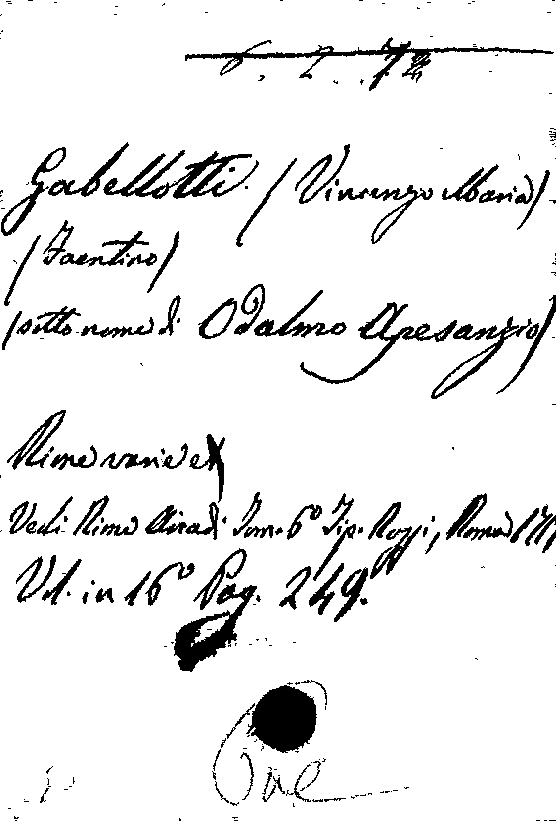 6. 2. 72
Gabellotti (Vincenzo Maria)
(Faentino)
(sotto nome di Odalmo Apesanzio)
Rime varie
Vedi Rime Arcadi Tom. 6º Tip. Rossi, Roma 171
Vol. in 16º Pag. 249.